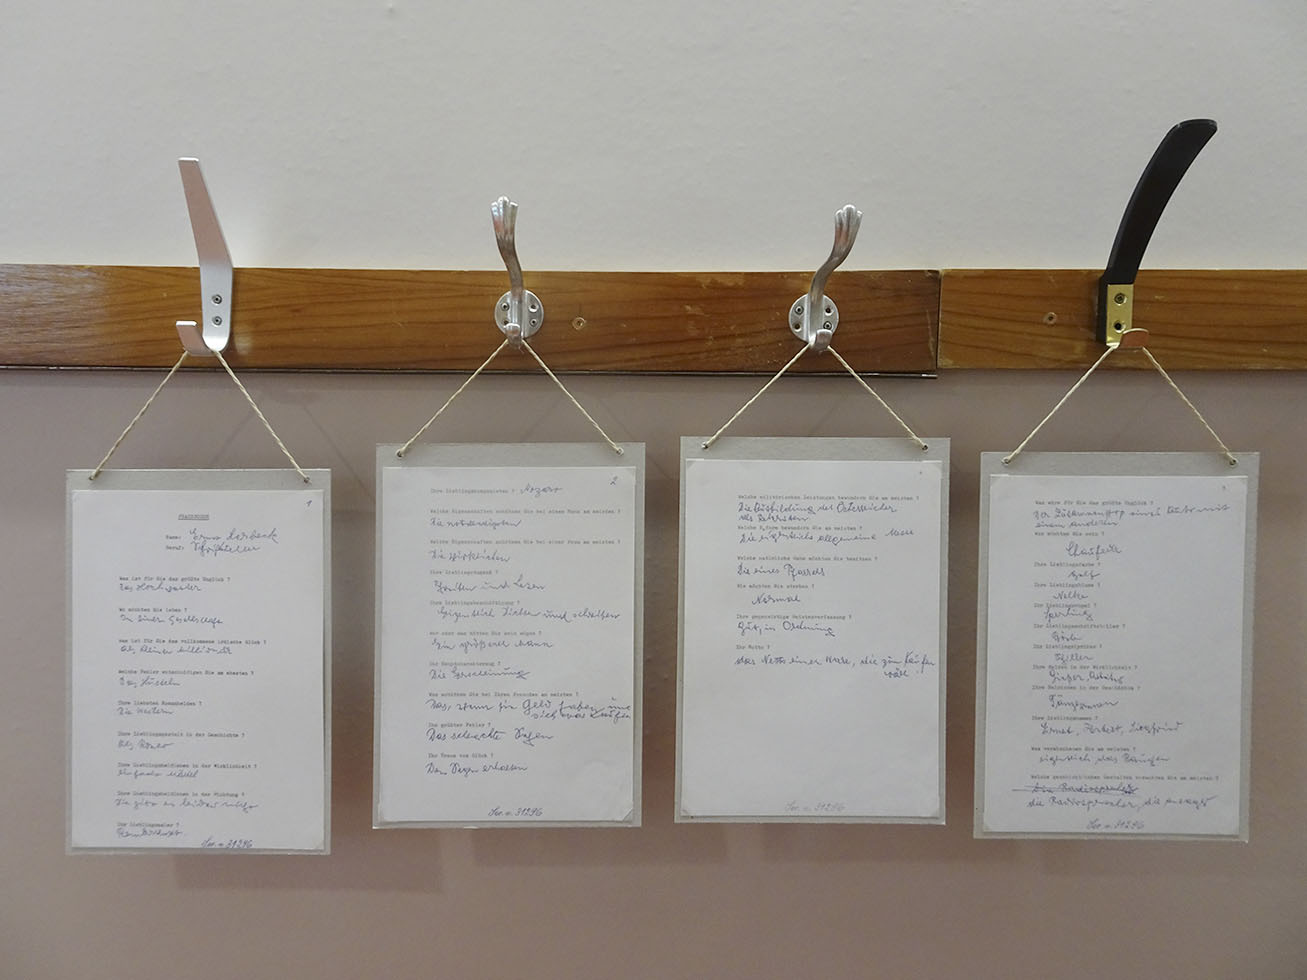 1
FRAGEBOGEN
Name: Ernst Herbeck
Beruf: Schriftsteller
Was ist für Sie das größte Unglück ?
Das Hochwasser
Wo möchten Sie leben ?
In einer Gesellschaft
Was ist für Sie das vollkommene irdische Glück ?
Als kleiner Millionär
Welche Fehler entschuldigen Sie am ehesten ?
Das Hüsteln
Ihre liebsten Romanhelden ?
Die Western
Ihre Lieblingsgestalt in der Geschichte ?
Als
Ihre Lieblingsheldinnen in der Wirklichkeit ?
einfache Mädel
Ihre Lieblingsheldinnen in der Dichtung ?
Die gibt es leider nicht
Ihr Lieblingsmaler ?
Rembrandt.
31296
2
Ihre Lieblingskomponisten ? Mozart
Welche Eigenschaften schätzen Sie bei einem Mann am meisten ?
Die notwendigsten
Welche Eigenschaften schätzen Sie bei einer Frau am meisten ?
Die wirklichen
Ihre Lieblingstugend ?
und Lesen
Ihre Lieblingsbeschäftigung ?
Eigentlich Dichten und schreiben
Wer oder was hätten Sie sein mögen ?
Ein größerer Mann
Ihr Hauptcharakterzug ?
Die Erscheinung
Was schätzen Sie bei Ihren Freunden am meisten ?
Das, wenn sie Geld haben und
sich was kaufen
Ihr größter Fehler ?
Das schlechte Sagen
Ihr Traum vom Glück ?
Den Segen erhalten
31296
Welche militärischen Leistungen bewundern Sie am meisten ?
Die Ausbildung des Österreicher
Welche Reform bewundern Sie am meisten ?
Die eigentliche allgemeine
Welche natürliche Gabe möchten Sie besitzen ?
Die eines Pfarrers
Wie möchten Sie sterben ?
Normal
Ihre gegenwärtige Geistesverfassung ?
Gut, in Ordnung
Ihr Motto ?
das Netto einer Ware, die zum Kaufen
wäre
31296
Was wäre für Sie das größte Unglück ?
Der Zusammenstoß eines Autos mit
einem anderen
Was möchten Sie sein ?
Chauffeur
Ihre Lieblingsfarbe ?
Gelb
Ihre Lieblingsblume ?
Nelke
Ihr Lieblingsvogel ?
Sperling
Ihr Lieblingsschriftsteller ?
Göthe
Ihr Lieblingslyriker ?
Schiller
Ihre Helden in der Wirklichkeit ?
Ihre Heldinnen in der Geschichte ?
Ihre Lieblingsnamen ?
Ernst, Herbert, Siegfried
Was verabscheuen Sie am meisten ?
eigentlich das
Welche geschichtlichen Gestalten verachten Sie am meisten ?
die Radiosprecher, die
31296